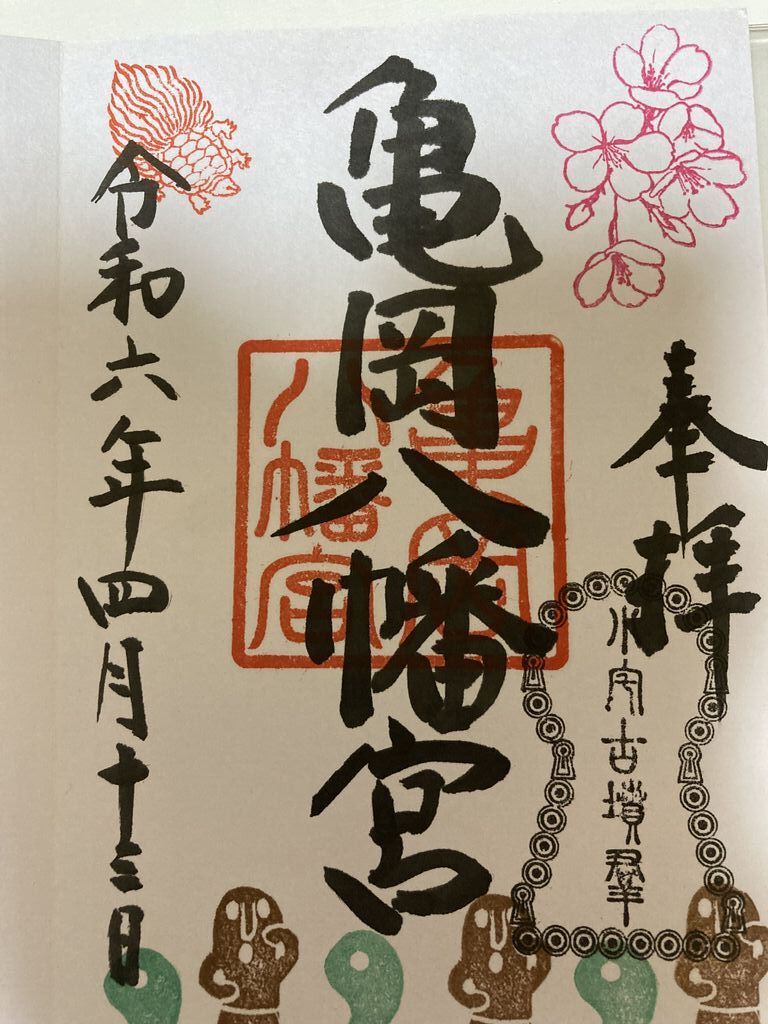 奉拝
小宅古墳群
亀岡八幡宮
亀岡
八幡宮
令和六年四月十三日